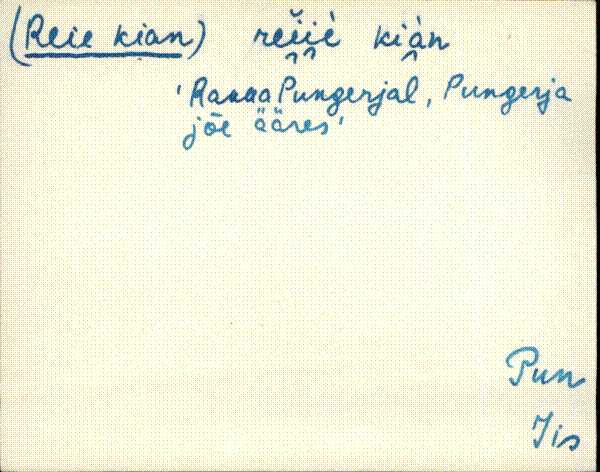 (Reie kian) rei̯i̯è ki̯àn
'RannaPungerjal, Pungerja
jõe ääres'
Pun
Jis